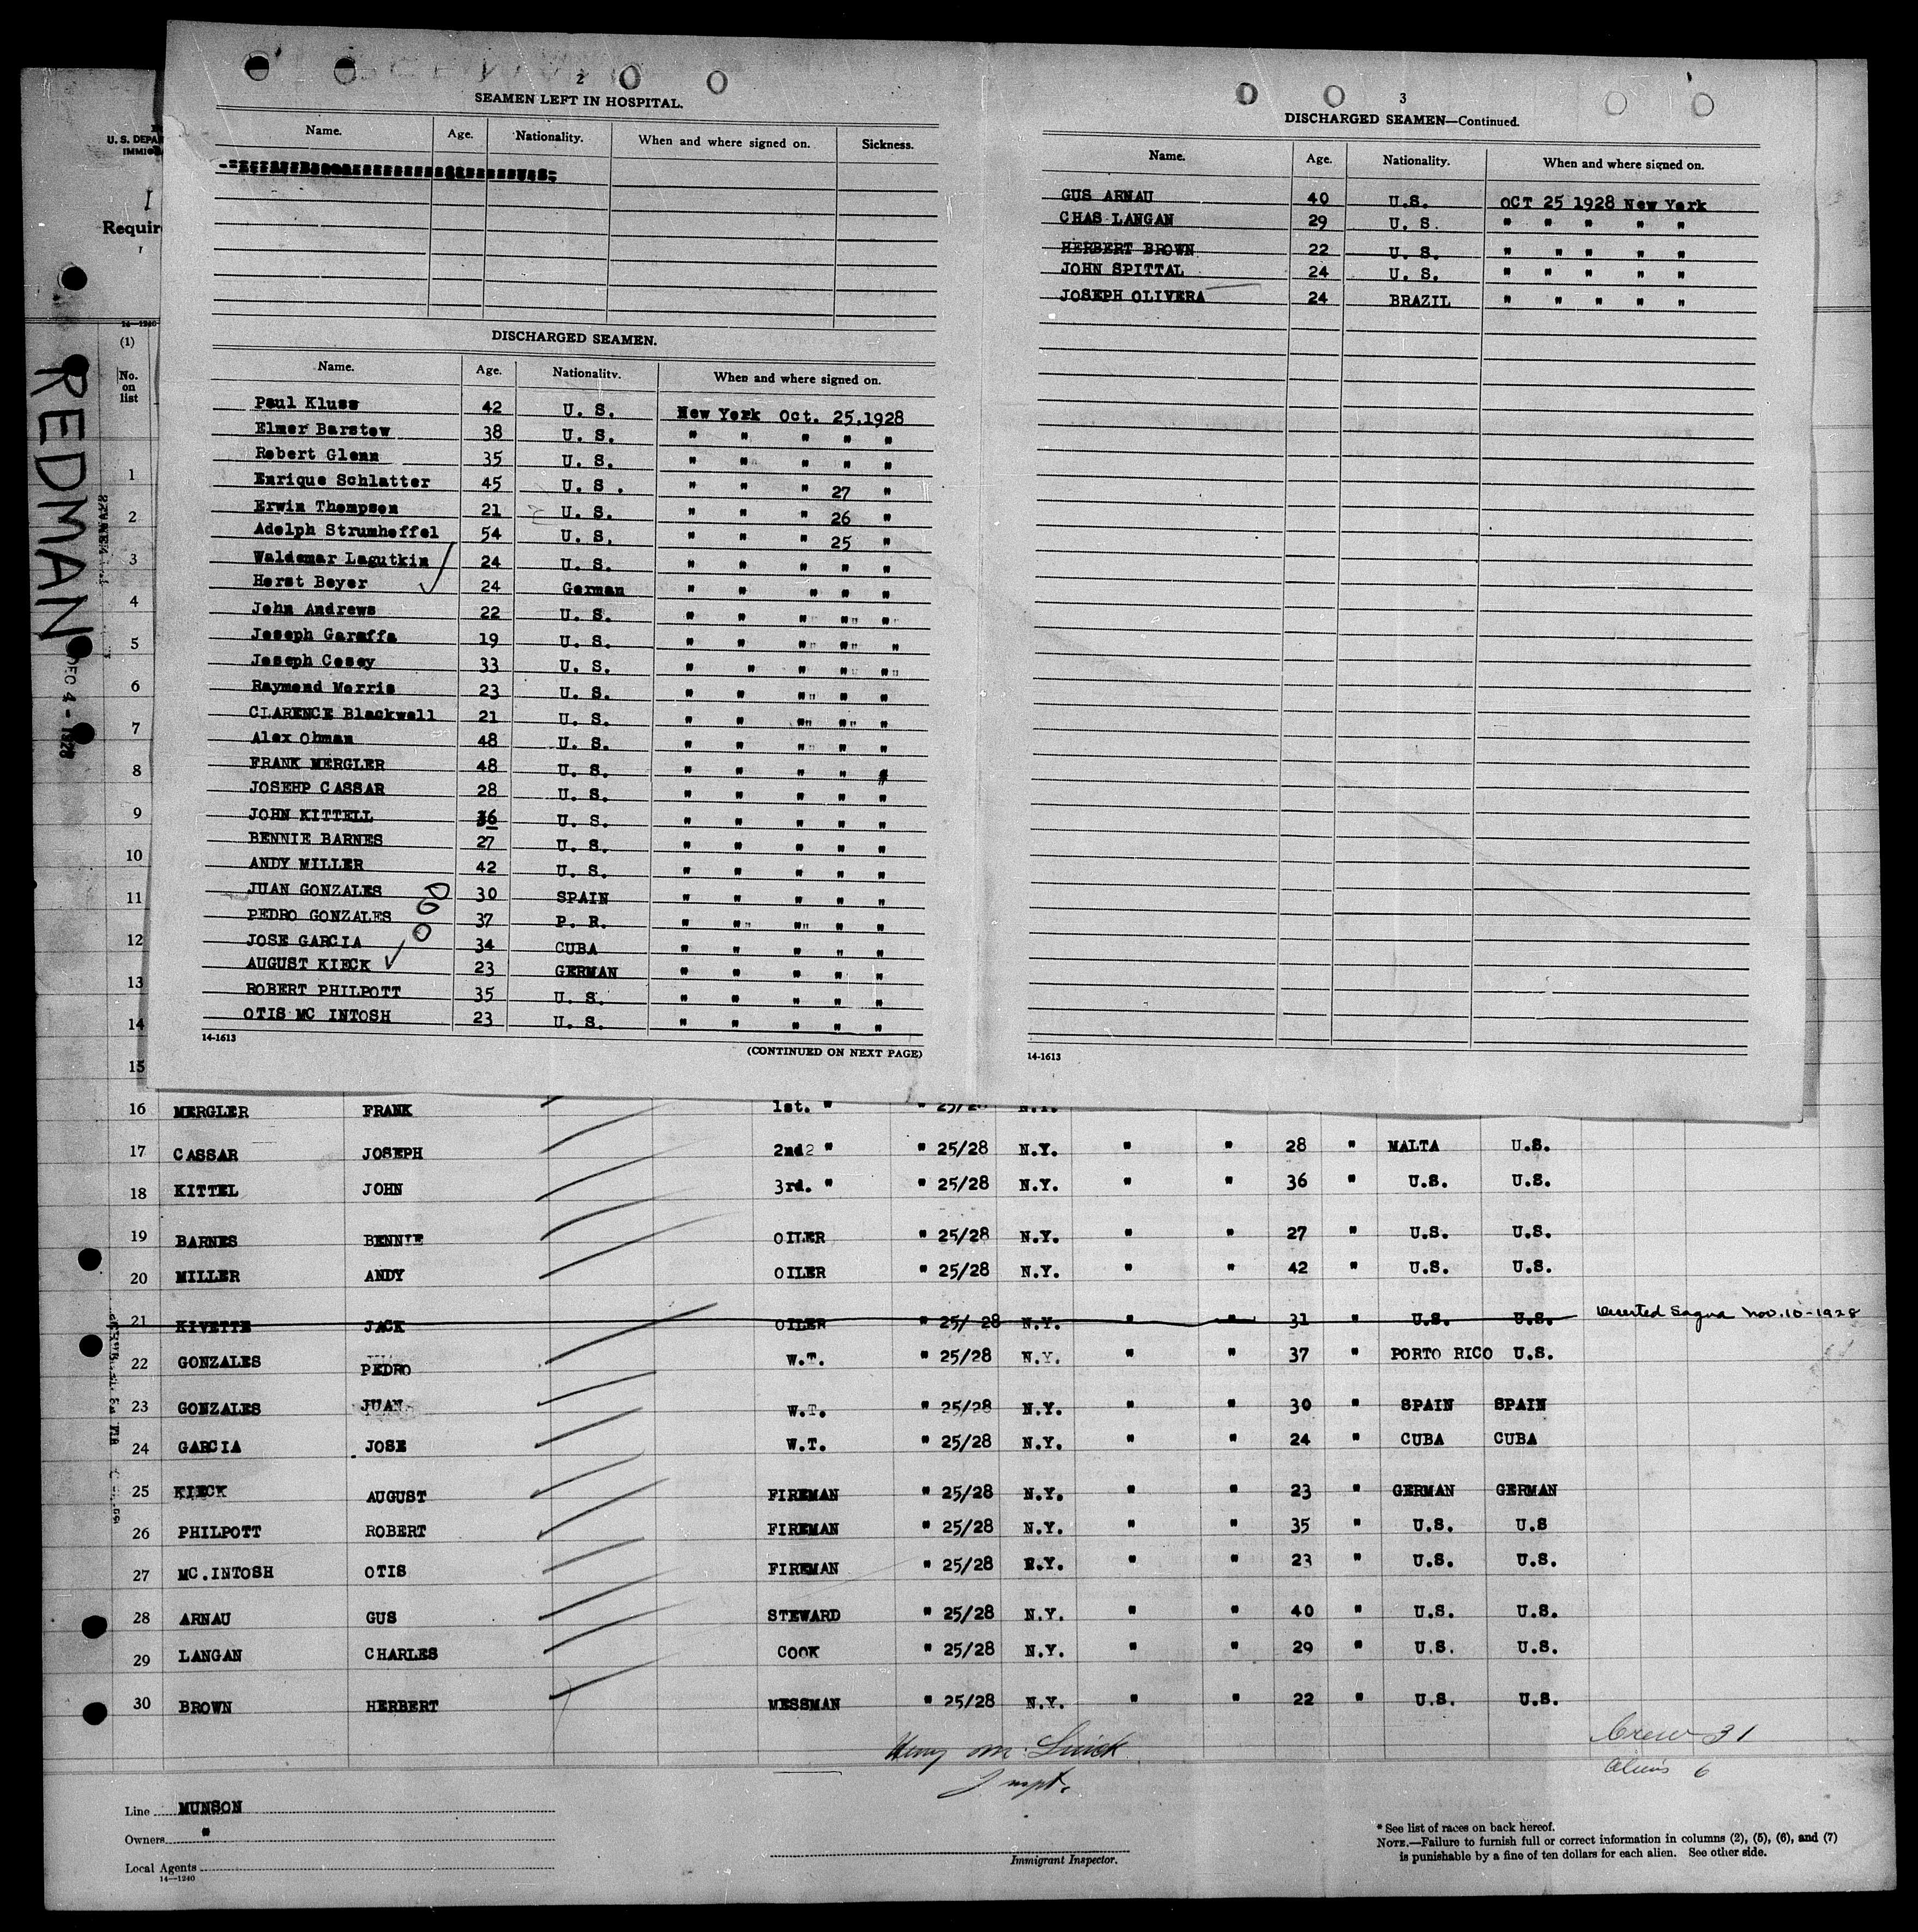 2
SEAMEN LEFT IN HOSPITAL.
Name. Age. Nationality. When and where signed on. Sickness.
DISCHARGED SEAMEN.
Name. Age. Nationality. When and where signed on.
Paul Kluss 42 U. S. New York Oct. 25,1928
Elmer Barstow 38 U. S. " " " " "
Robert Glenn 35 U. S. " " " " "
Enrique Schlatter 45 U. S. " " " 27 "
Erwin Thompson 21 U. S. " " " 26 "
Adolph Strumheffel 54 U. S. " " " 25 "
Waldemar Lagutkin 24 U. S. " " " " "
Horst Beyer 24 German " " " " "
John Andrews 22 U. S. " " " " "
Joseph Garaffa 19 U. S. " " " " "
Joseph Cosey 33 U. S. " " " " "
Raymond Morris 23 U. S. " " " " "
CLARENCE Blackwell 21 U. S. " " " " "
Alex Ohman 48 U. S. " " " " "
FRANK MERGLER 48 U. S. " " " " "
JOSEHP CASSAR 28 U. S. " " " " "
JOHN KITTELL 36 U. S. " " " " "
BENNIE BARNES 27 U. S. " " " " "
ANDY MILLER 42 U. S. " " " " "
JUAN GONZALES 30 SPAIN " " " " "
PEDRO GONZALES 37 P. R. " " " " "
JOSE GARCIA 34 CUBA " " " " "
AUGUST KIECK 23 GERMAN " " " " "
ROBERT PHILPOTT 35 U. S. " " " " "
OTIS MC INTOSH 23 U. S. " " " " "
14-1613 (CONTINUED ON NEXT PAGE)
3
DISCHARGED SEAMEN—Continued.
Name. Age. Nationality. When and where signed on.
GUS ARNAU 40 U.S. OCT 25 1928 New York
CHAS LANGAN 29 U. S. " " " " "
HERBERT BROWN 22 U. S. " " " " "
JOHN SPITTAL 24 U. S. " " " " "
JOSEPH OLIVERA 24 BRAZIL " " " " "
14-1613
U. S. DEPA
IMMIG
I
Requir
14—1240
(1)
No. on list
REDMAN
DEC 4 - 1928
1
2
3
4
5
6
7
8
9
10
11
12
13
14
15
16 MERGLER FRANK 1st. " " 25/28 N.Y.
17 CASSAR JOSEPH 2nd " " 25/28 N.Y. " " 28 " MALTA U.S.
18 KITTEL JOHN 3rd. " " 25/28 N.Y. " " 36 " U.S. U.S.
19 BARNES BENNIE OILER " 25/28 N.Y. " " 27 " U.S. U.S.
20 MILLER ANDY OILER " 25/28 N.Y. " " 42 " U.S. U.S.
21 KIVETTE JACK OILER " 25/ 28 N.Y. " " 31 " U.S. U.S. Deserted Sagua Nov. 10-1928
22 GONZALES PEDRO W.T. " 25/28 N.Y. " " 37 " PORTO RICO U.S.
23 GONZALES JUAN W.T. " 25/28 N.Y. " " 30 " SPAIN SPAIN
24 GARCIA JOSE W.T. " 25/28 N.Y. " " 24 " CUBA CUBA
25 KIECK AUGUST FIREMAN " 25/28 N.Y. " " 23 " GERMAN GERMAN
26 PHILPOTT ROBERT FIREMAN " 25/28 N.Y. " " 35 " U.S. U.S
27 MC.INTOSH OTIS FIREMAN " 25/28 N.Y. " " 23 " U.S. U.S.
28 ARNAU GUS STEWARD " 25/28 N.Y. " " 40 " U.S. U.S.
29 LANGAN CHARLES COOK " 25/28 N.Y. " " 29 " U.S. U.S.
30 BROWN HERBERT MESSMAN " 25/28 N.Y. " " 22 " U.S. U.S.
Crew 31
Aliens 6
Line MUNSON
Owners "
Local Agents
14—1240
Immigrant Inspector.
* See list of races on back hereof.
NOTE.—Failure to furnish full or correct information in columns (2), (5), (6), and (7)
is punishable by a fine of ten dollars for each alien. See other side.